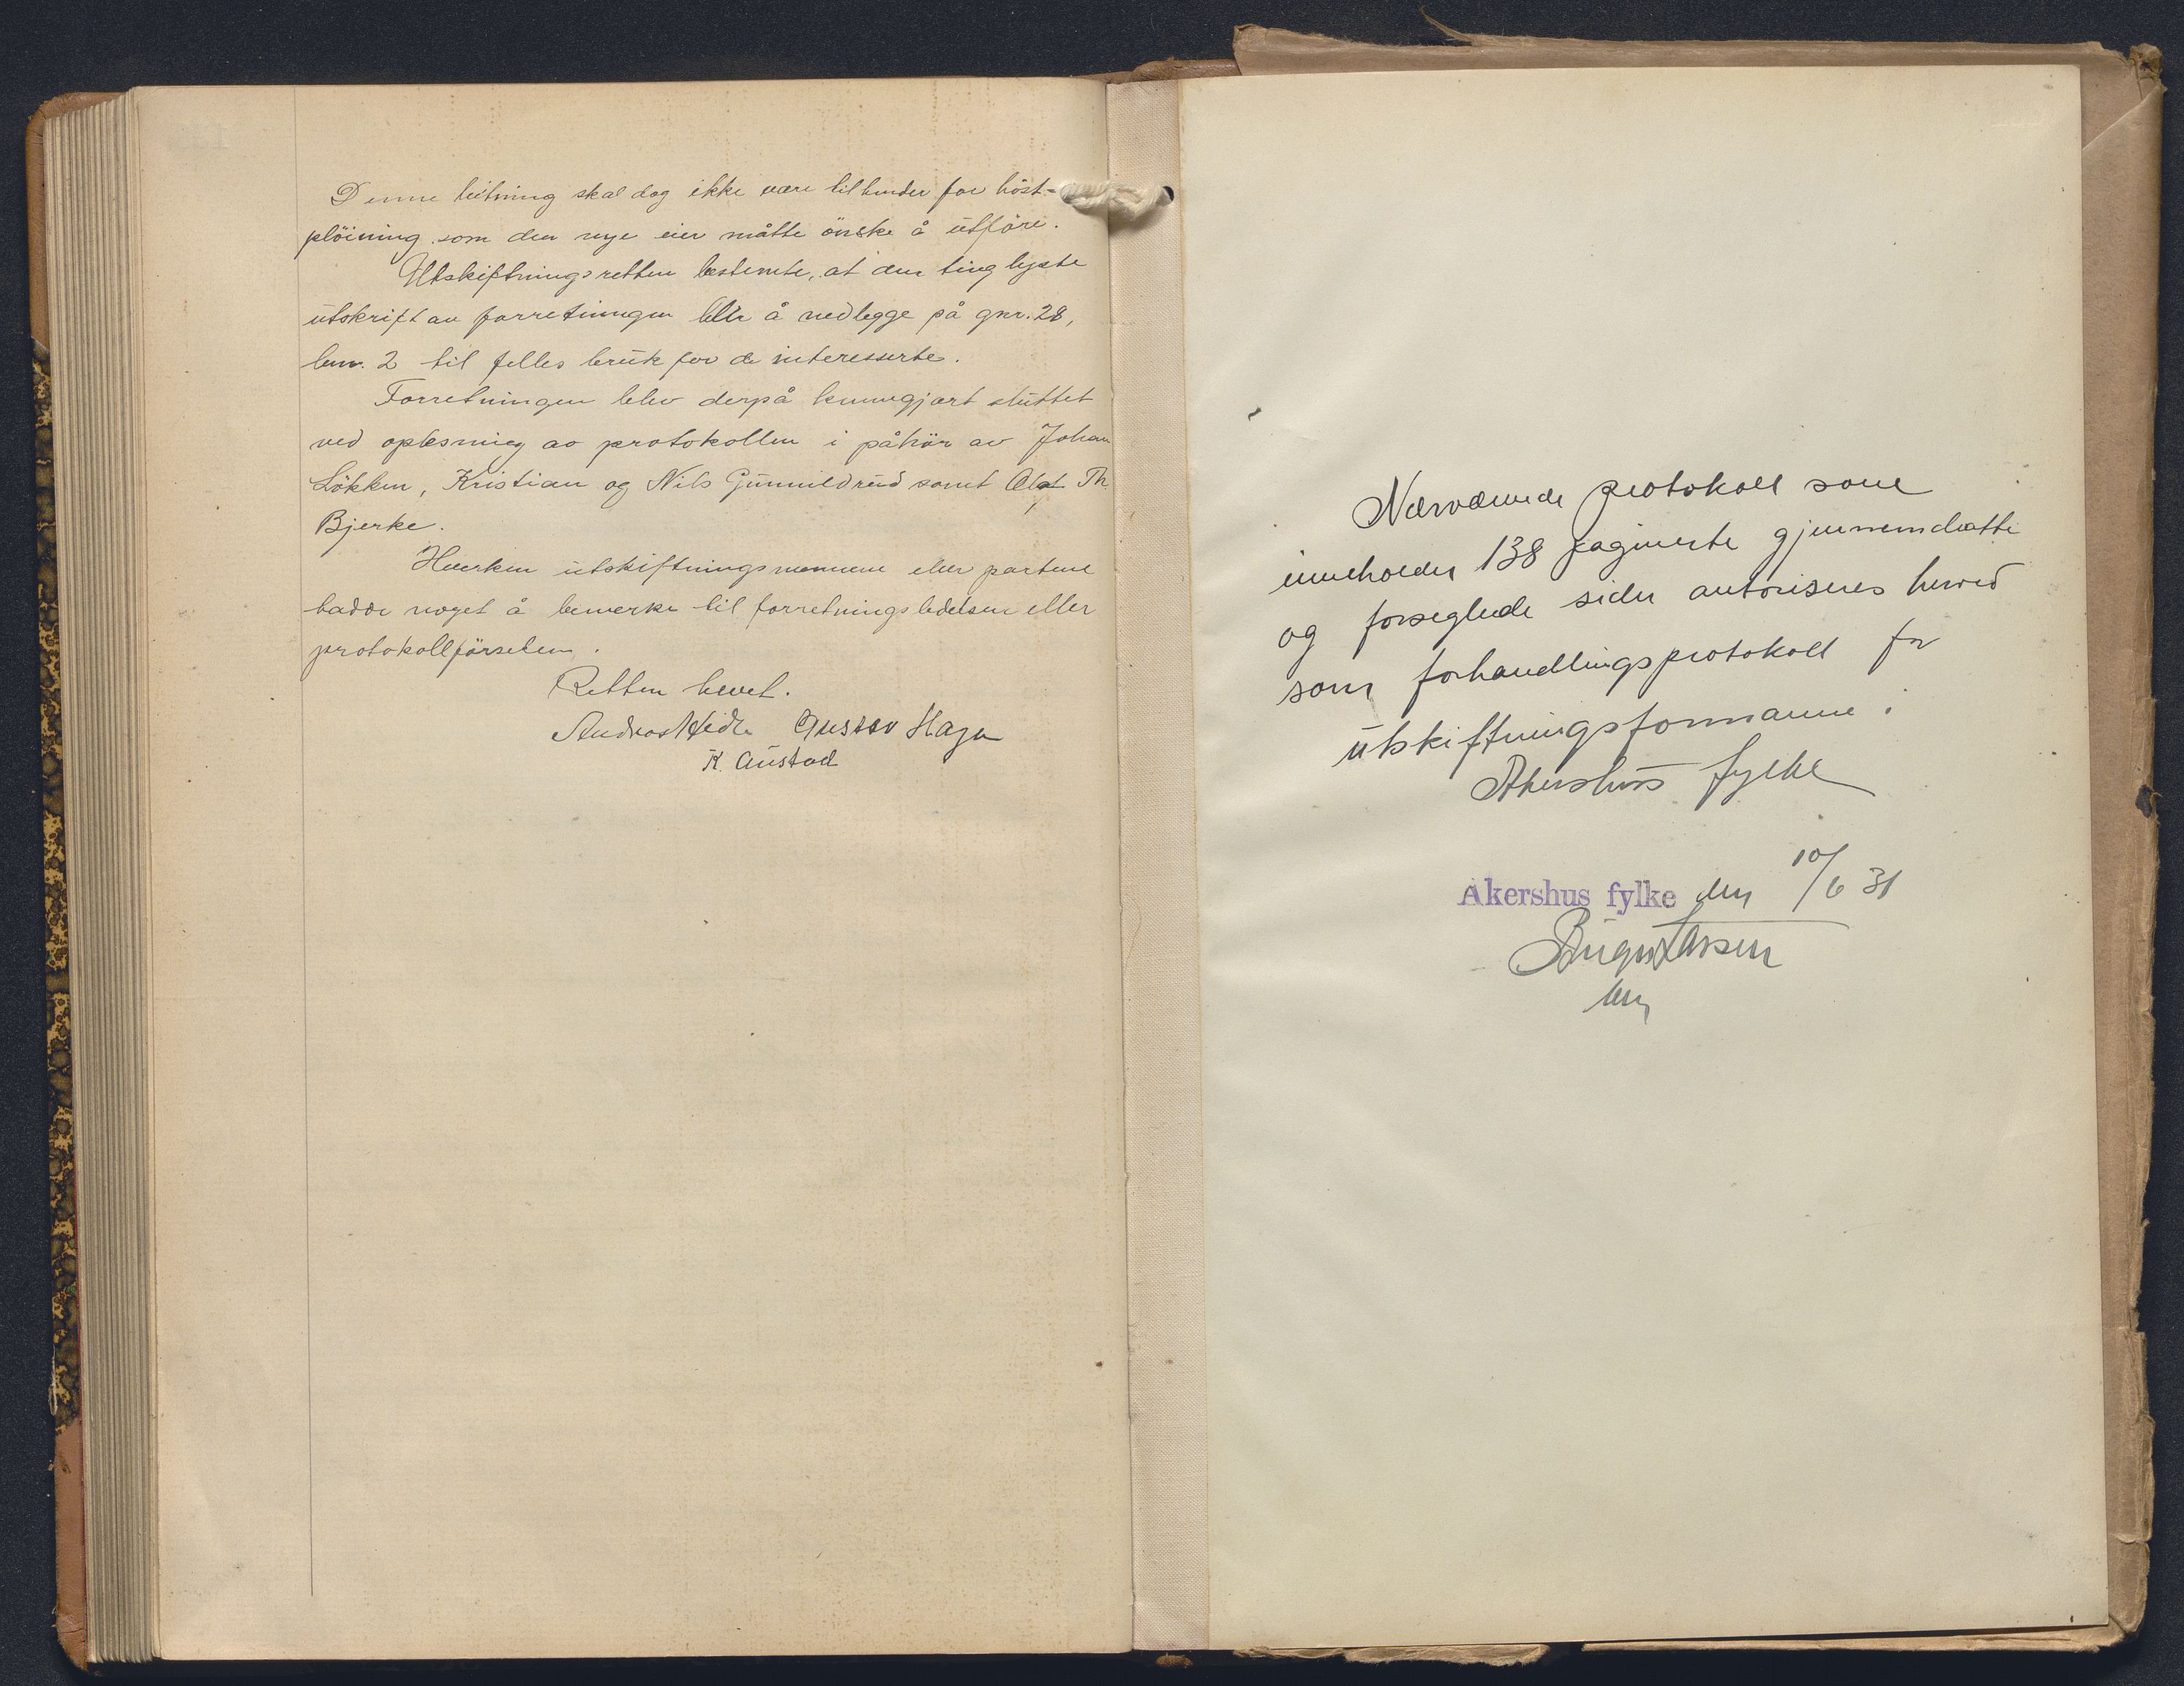 Denne beitning skal dog ikke være til hinder for höst-
plöining som den nye eier måtte önske å utföre.
Utskiftningsretten bestemte, at den tinglyste
utskrift av forretningen blir å nedlegge på gnr. 28,
bnr. 2 til felles bruk for de interesserte.
Forretningen blev derpå kunngjort sluttet
ved oplesning av protokollen i påhör av Johan
Lökken, Kristian og Nils Gunnildrud samt Olaf Th
Bjerke.
Hverken utskiftningsmennene eller partene
hadde noget å bemerke til forretningsledelsen eller
protokollförselen.
Retten hevet.
Andreas Gustav Hagen
K. Austad
Nærværende protokoll som
inneholder 138 paginerte gjennemdratte
og forseglede sider autoriseres herved
som forhandlingsprotokoll for
utskiftningsformannen i
Akershus fylke
Akershus fylke den 10/6 31